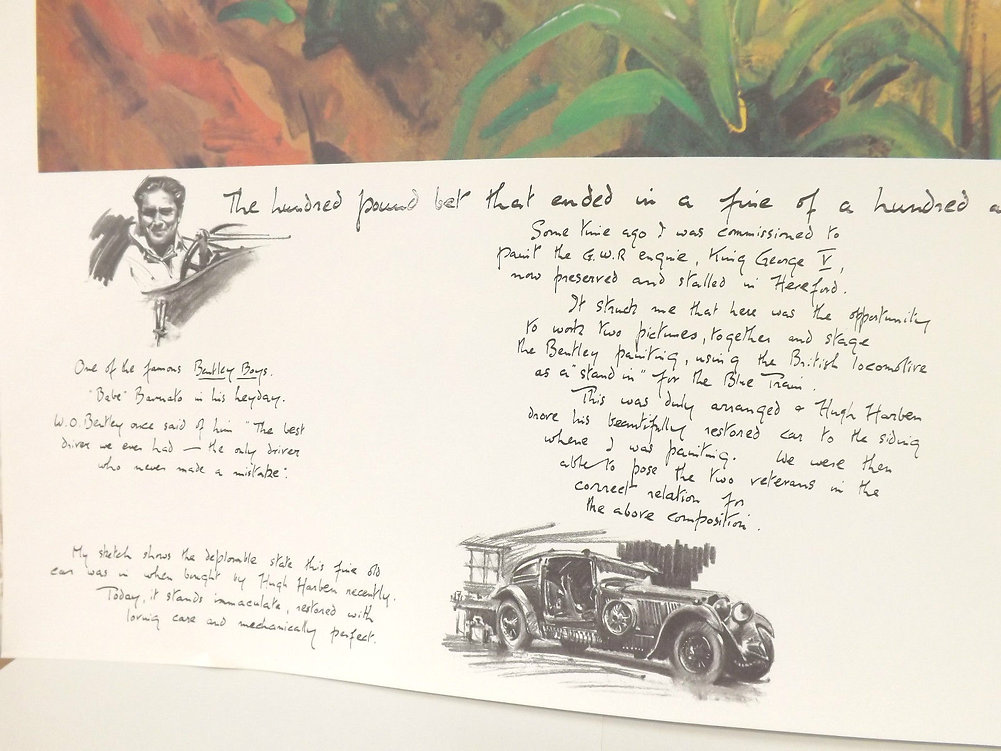 The hundred pound bet that ended in a fine of a hundred a
Some time ago I was commissioned to
paint the G.W.R engine, King George V,
now preserved and stalled in Hereford.
It struck me that here was the opportunity
to work two pictures, together and stage
the Bentley painting, using the British locomotive
as a "stand in" for the Blue Train.
This was duly arranged & Hugh Harben
drove his beautifully restored car to the siding
where I was painting. We were then
able to pose the two veterans in the
correct relation for
the above composition.
One of the famous Bentley Boys.
"Babe" Barnato in his heyday.
W.O. Bentley once said of him "The best
driver we ever had — the only driver
who never made a mistake".
My sketch shows the deplorable state this fine old
car was in when bought by Hugh Harben recently.
Today, it stands immaculate, restored with
loving care and mechanically perfect.